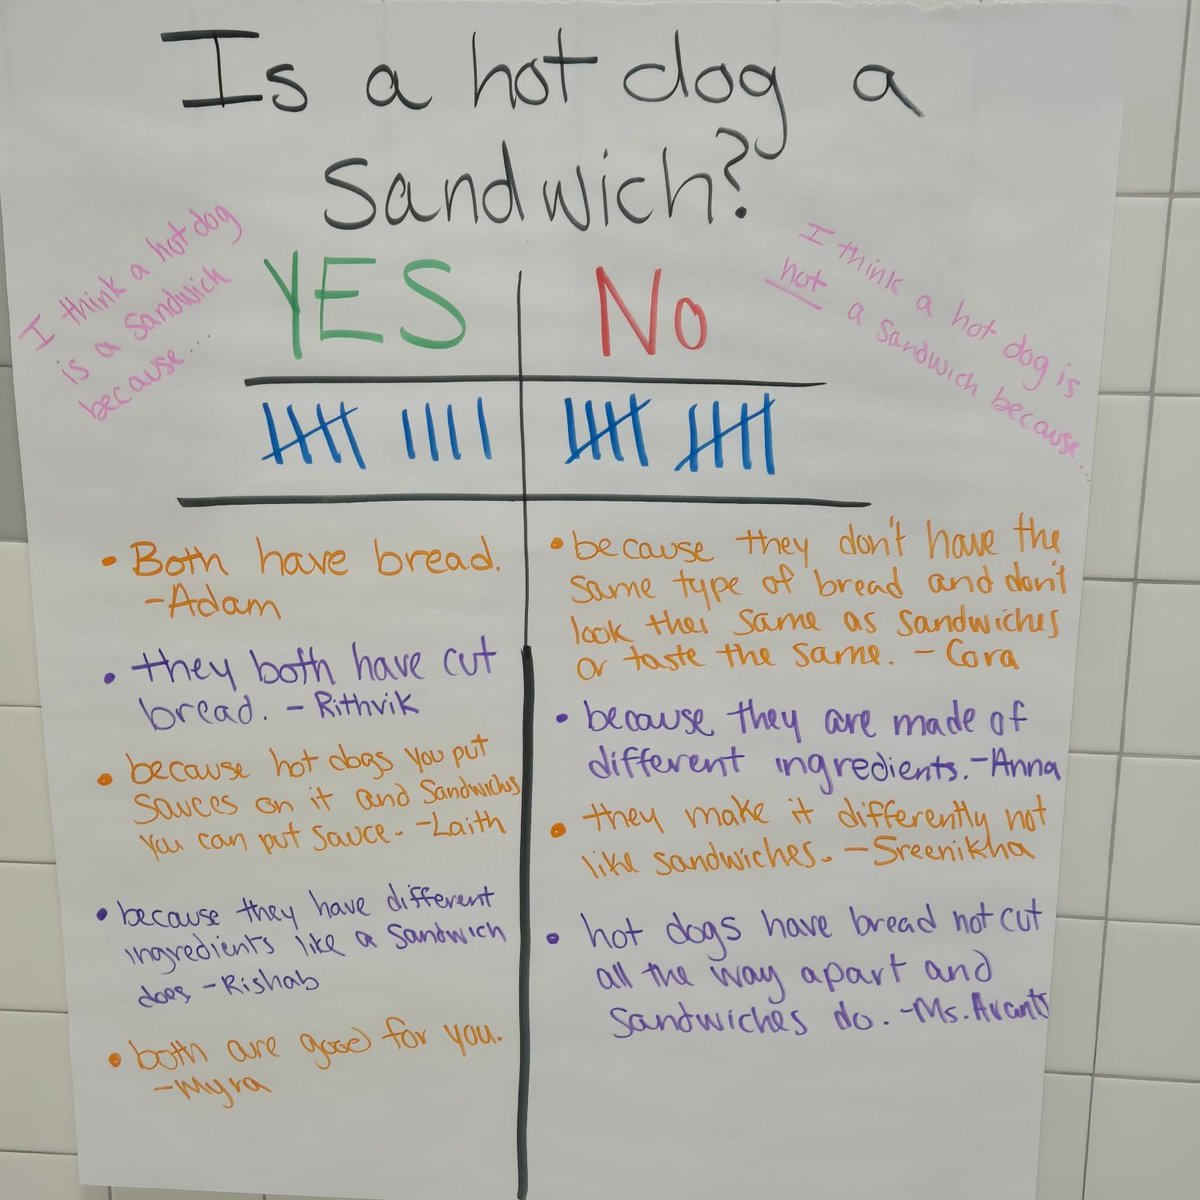 Is a hot dog a
Sandwich?
I think a hot dog
is a sandwich
because...
I think a hot dog is
not a sandwich because...
YES
No
• Both have bread.
-Adam
• they both have cut
bread. - Rithvik
• because hot dogs you put
sauces on it and sandwiches
you can put sauce. -Laith
• because they have different
ingredients like a sandwich
does -Rishab
• both are good for you.
-Myra
• because they don't have the
same type of bread and don't
look the same as sandwiches
or taste the same. - Cora
• because they are made of
different ingredients.-Anna
• they make it differently not
like sandwiches. -Sreenikha
• hot dogs have bread not cut
all the way apart and
sandwiches do. -Ms. Avants